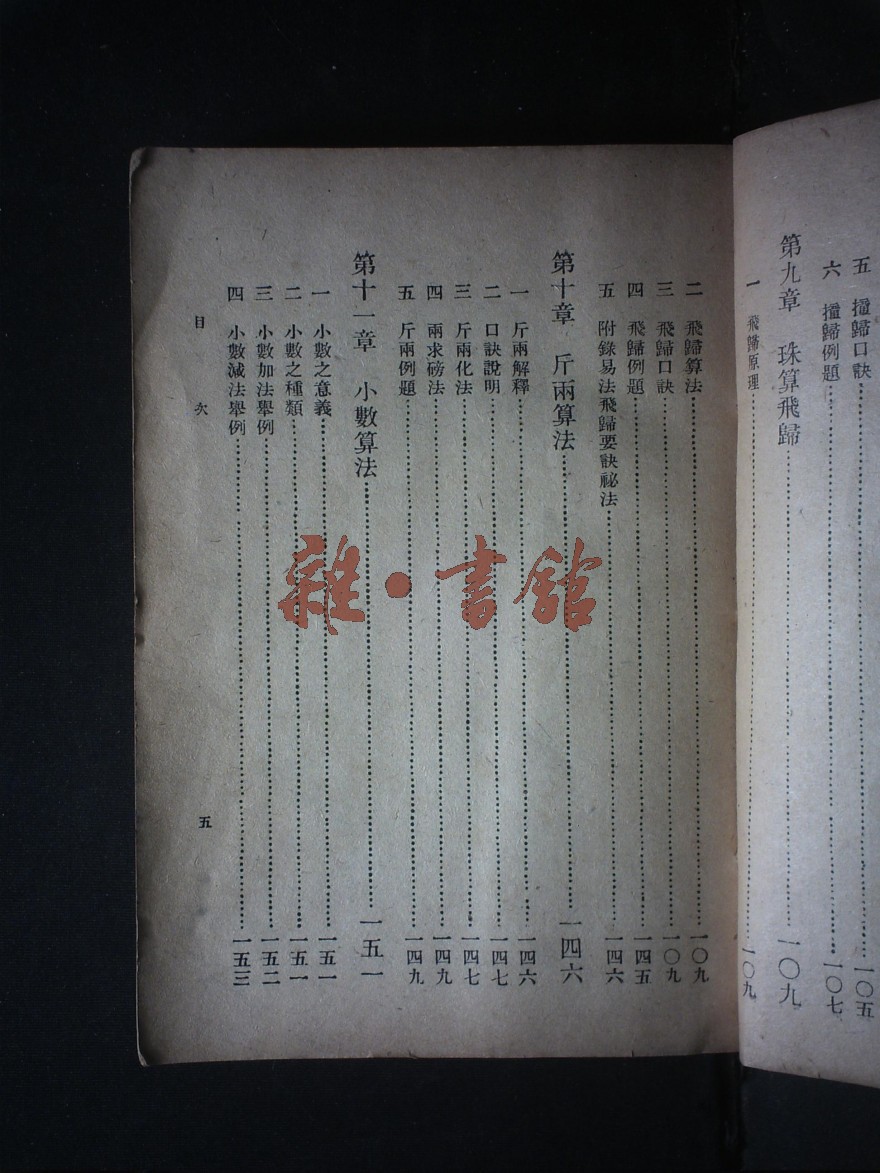 五 撞歸口訣……一〇五
六 撞歸例題……一〇七
第九章 珠算飛歸……一〇九
一 飛歸原理……一〇九
二 飛歸算法……一〇九
三 飛歸口訣……一〇九
四 飛歸例題……一四五
五 附錄易法飛歸要訣祕法……一四六
第十章 斤兩算法……一四六
一 斤兩解釋……一四六
二 口訣說明……一四七
三 斤兩化法……一四七
四 兩求磅法……一四九
五 斤兩例題……一四九
第十一章 小數算法……一五一
一 小數之意義……一五一
二 小數之種類……一五一
三 小數加法舉例……一五二
四 小數減法舉例……一五三
目 次 五
雜·書館